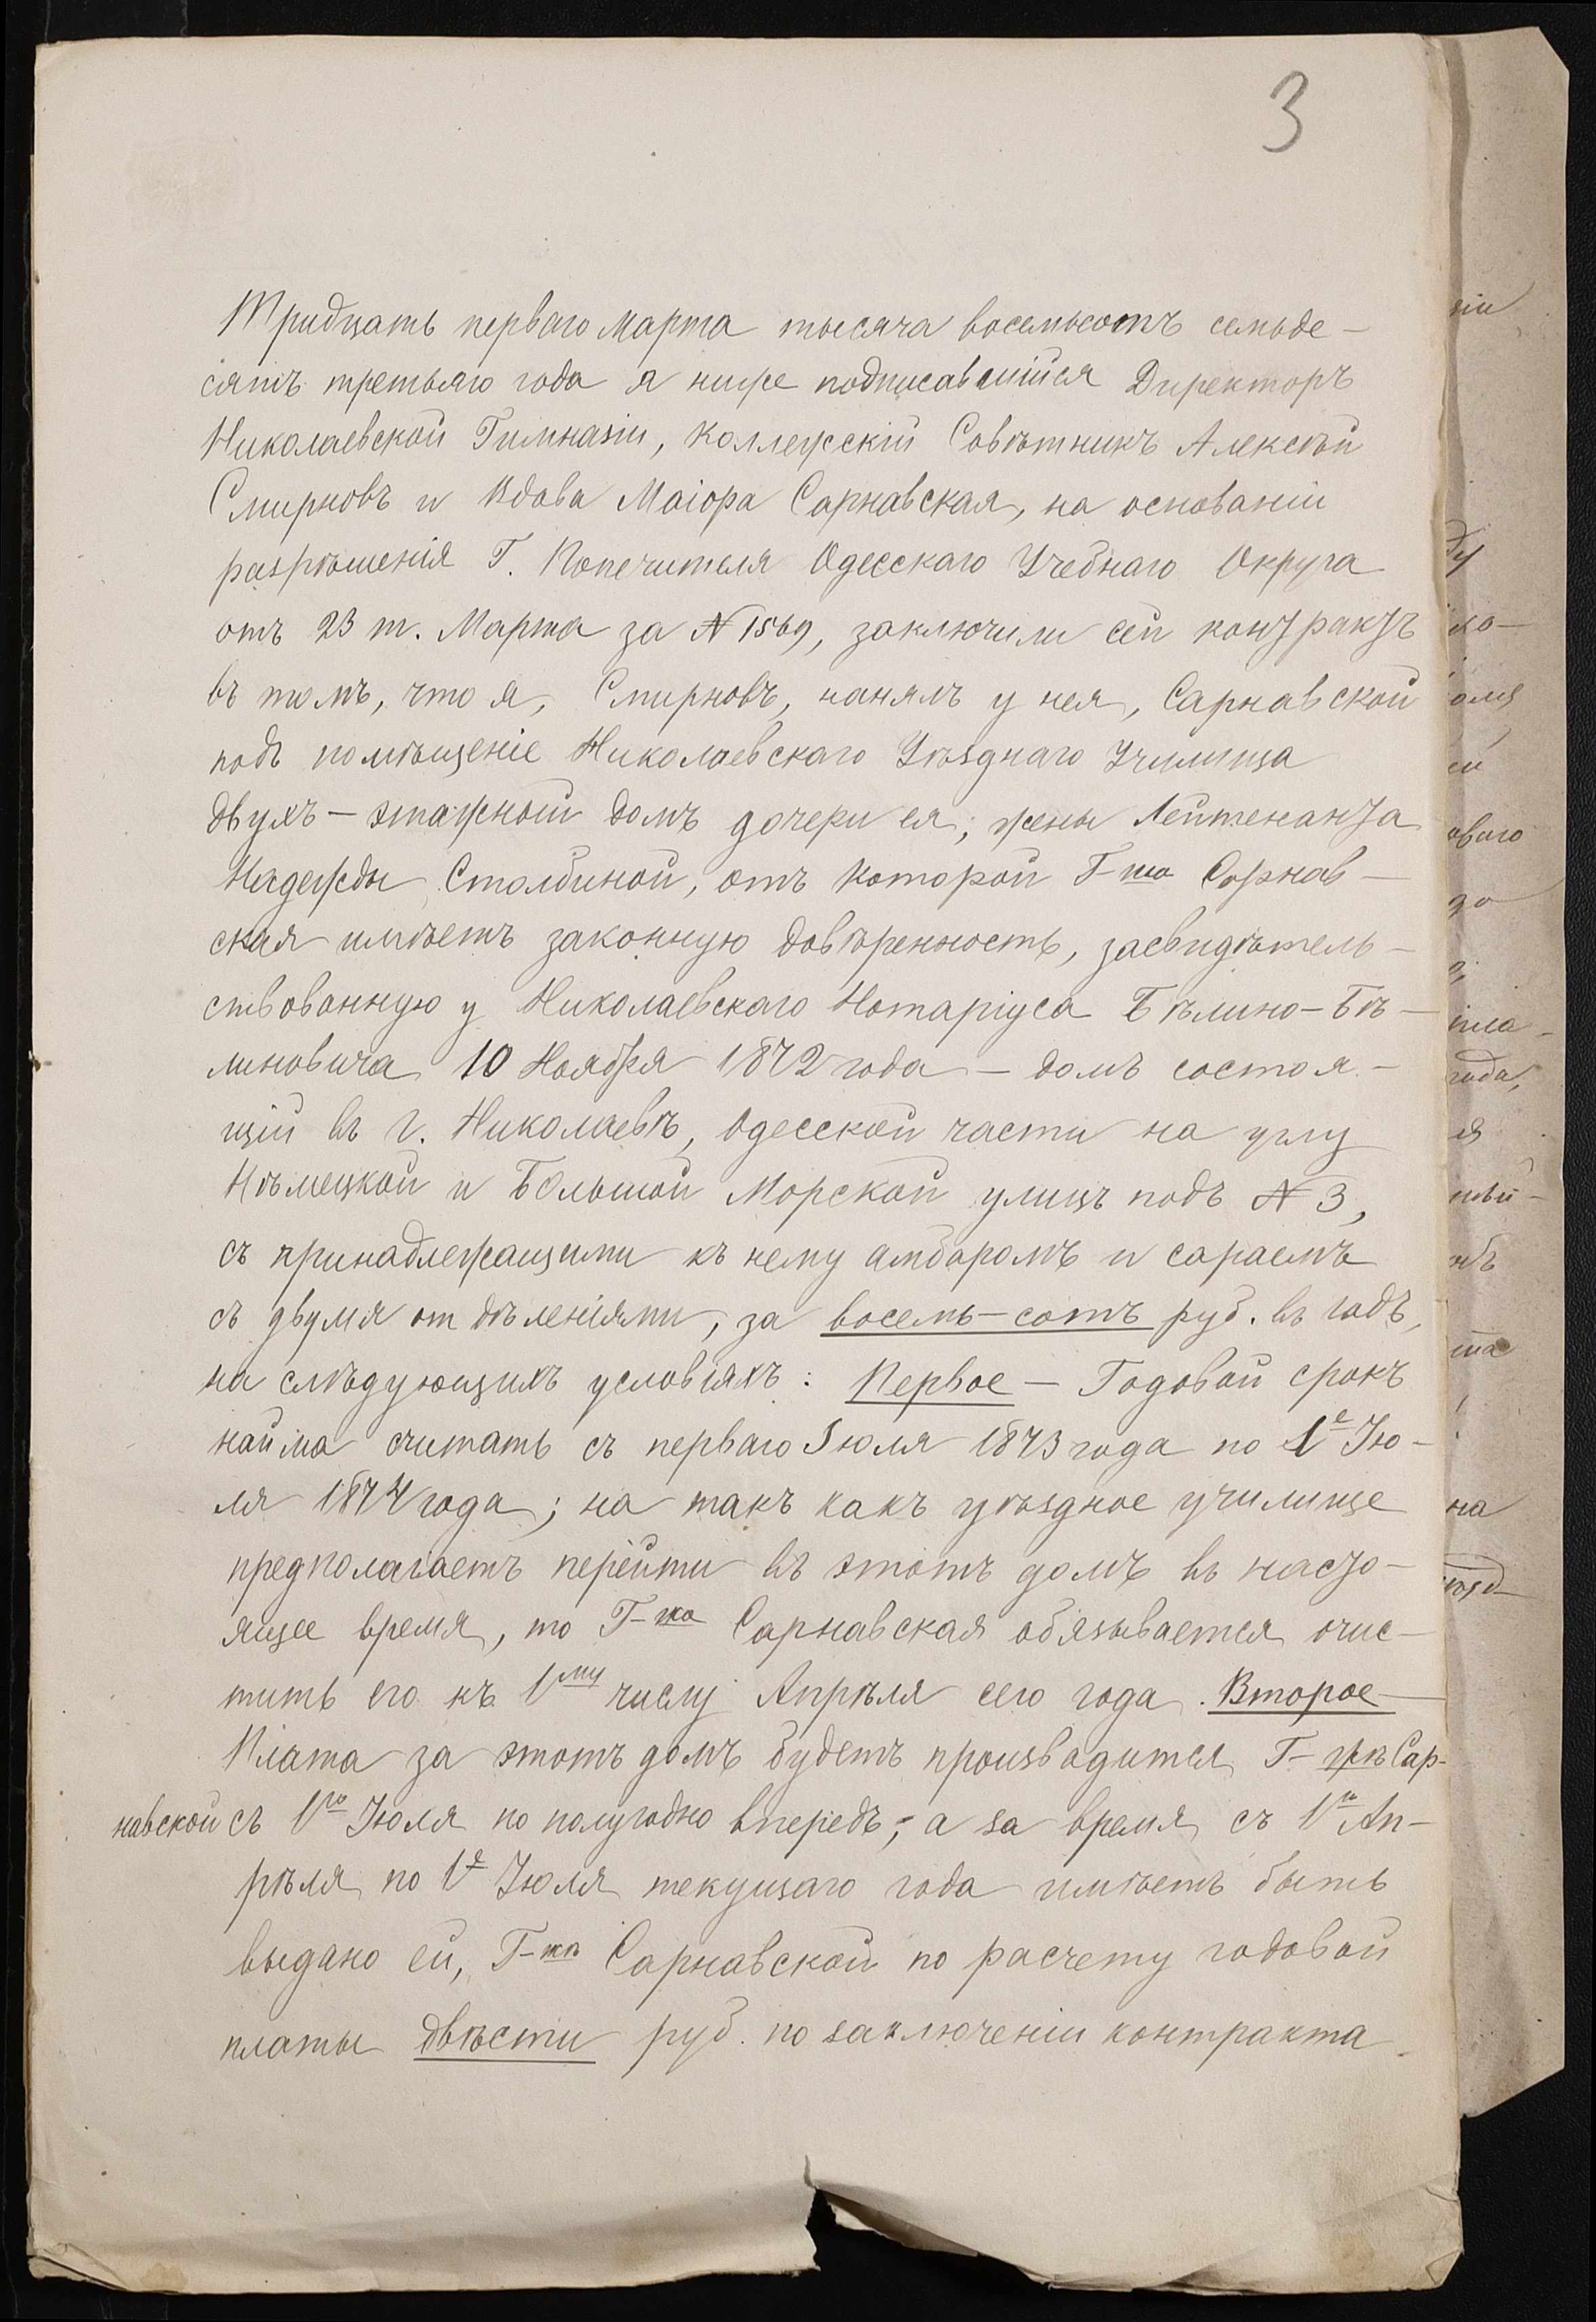 3
Тридцать перваго Марта тысяча восемьсотъ семьде-
сятъ третьяго года я ниже подписавшійся Директоръ
Николаевской Гимназіи, Коллежскій Совѣтникъ Алексѣй
Смирновъ и Вдова Маіора Сарнавская, на основаніи
разрѣшенія Г. Попечителя Одесскаго Учебнаго Округа
отъ 23 т. Марта за № 1569, заключили сей контрактъ
въ томъ, что я, Смирновъ, нанялъ у нея, Сарнавской
подъ помѣщеніе Николаевскаго Уѣзднаго Училища
двухъ-этажный домъ дочери ея, жены Лейтенанта
Надежды Столбиной, отъ которой Г-жа Сарнав-
ская имѣетъ законную довѣренность, засвидѣтель-
ствованную у Николаевскаго Нотаріуса Бѣлино-Бѣ-
линовича 10 Ноября 1872 года - домъ состоя-
щій въ г. Николаевѣ, Одесской части на углу
Нѣмецкой и Большой Морской улицъ подъ № 3,
съ принадлежащими къ нему амбаромъ и сараемъ
съ двумя отдѣленіями, за восемь-сотъ руб. въ годъ,
на слѣдующихъ условіяхъ: Первое - Годовой срокъ
найма считать съ перваго Іюля 1873 года по 1е Ію-
ля 1874 года; на такъ какъ уѣздное училище
предполагаетъ перейти въ этотъ домъ въ насто-
ящее время, то Г-жа Сарнавская обязывается очис-
тить его къ 1му числу Апрѣля сего года. Второе -
Плата за этотъ домъ будетъ производится Г-жѣ Сар-
навской съ 1го Іюля по полугодно впередъ; а за время съ 1го Ап-
рѣля по 1е Іюля текущаго года имѣетъ быть
выдано ей, Г-жѣ Сарнавской по расчету годовой
платы двѣсти руб. по заключеніи контракта.